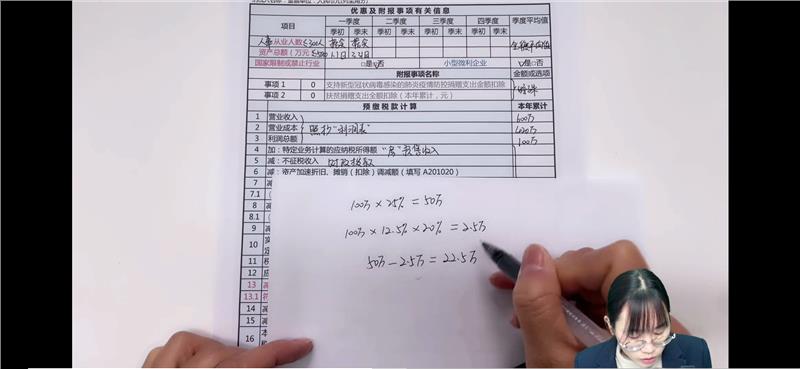 优惠及附报事项有关信息
项目 一季度 二季度 三季度 四季度 季度平均值
季初 季末 季初 季末 季初 季末 季初 季末
从业人数 ≤300人
资产总额（万元
国家限制或禁止行业 □是 □否 小型微利企业 □是□否
附报事项名称 金额或选项
事项 1 0 支持新型冠状病毒感染的肺炎疫情防控捐赠支出全额扣除
事项 2 0 扶贫捐赠支出全额扣除（本年累计，元）
预缴税款计算 本年累计
1 营业收入 600万
2 营业成本 照抄"利润表"
3 利润总额 100万
4 加：特定业务计算的应纳税所得额 "房"预售收入
5 减：不征税收入 财政拨款
6 减：资产加速折旧、摊销（扣除）调减额（填写 A201020）
7 减
7.1
8 减
8.1
9
10
11 税
12 应
13 减
13.1 符
14 减
15 减
16 本
100万×25%=50万
100万×12.5%×20%=2.5万
50万-2.5万=22.5万